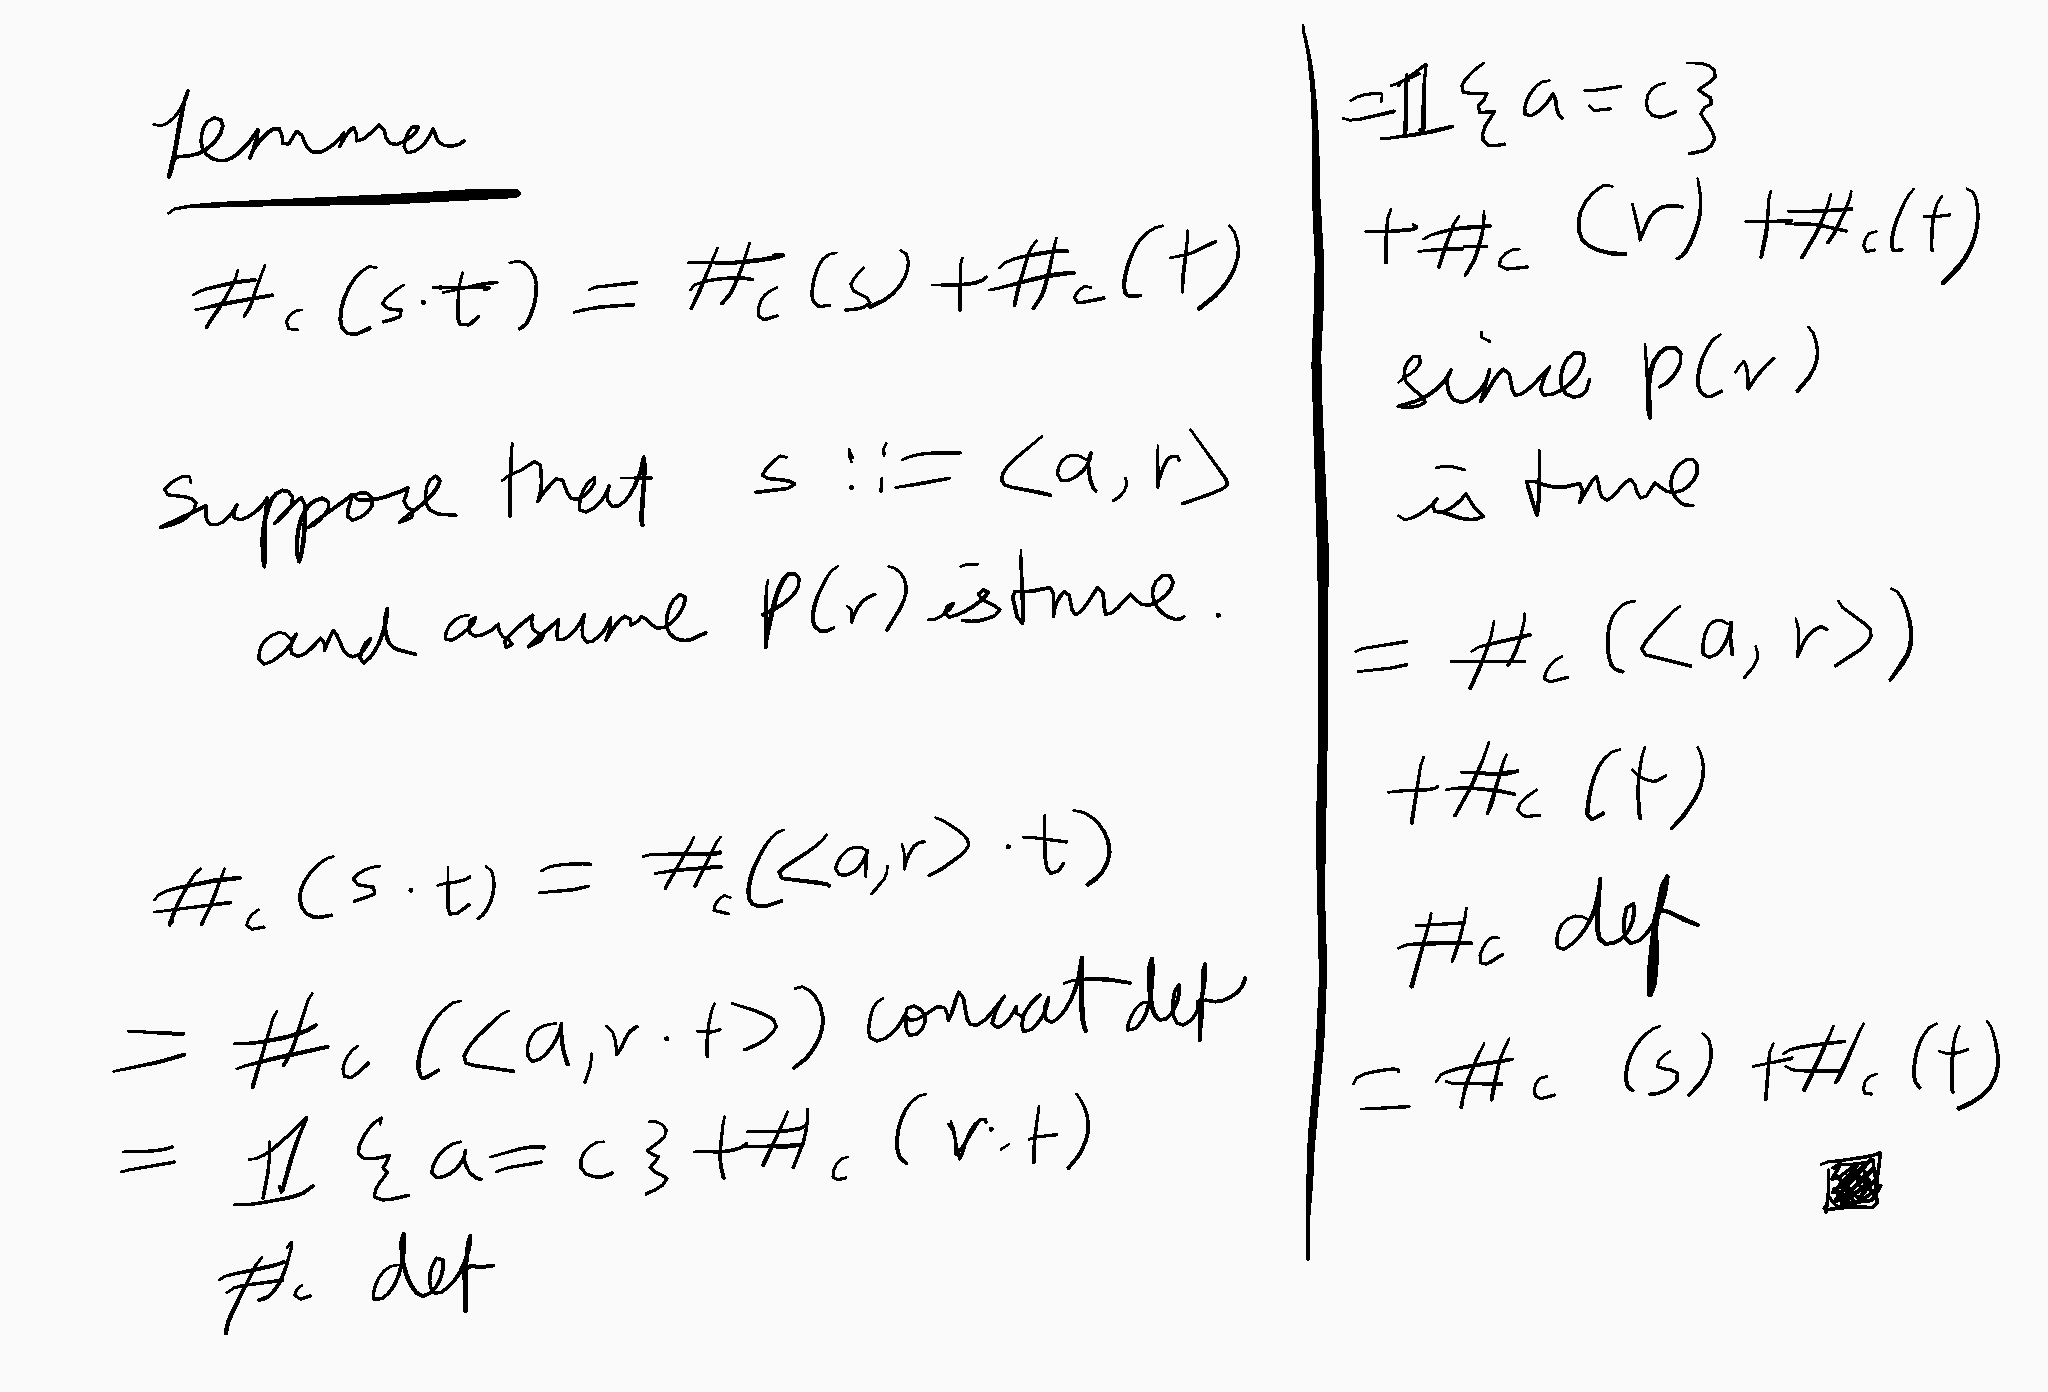 Lemma
#c (s·t) = #c (s) + #c (t)
suppose that s ::= <a, r>
and assume P(r) is true.
#c (s·t) = #c (<a,r>·t)
= #c (<a, r·t>) concat def
= 𝟙 {a=c} + #c (r·t)
#c def
= 𝟙 {a=c}
+ #c (r) + #c (t)
since P(r)
is true
= #c (<a, r>)
+ #c (t)
#c def
= #c (s) + #c (t)
■